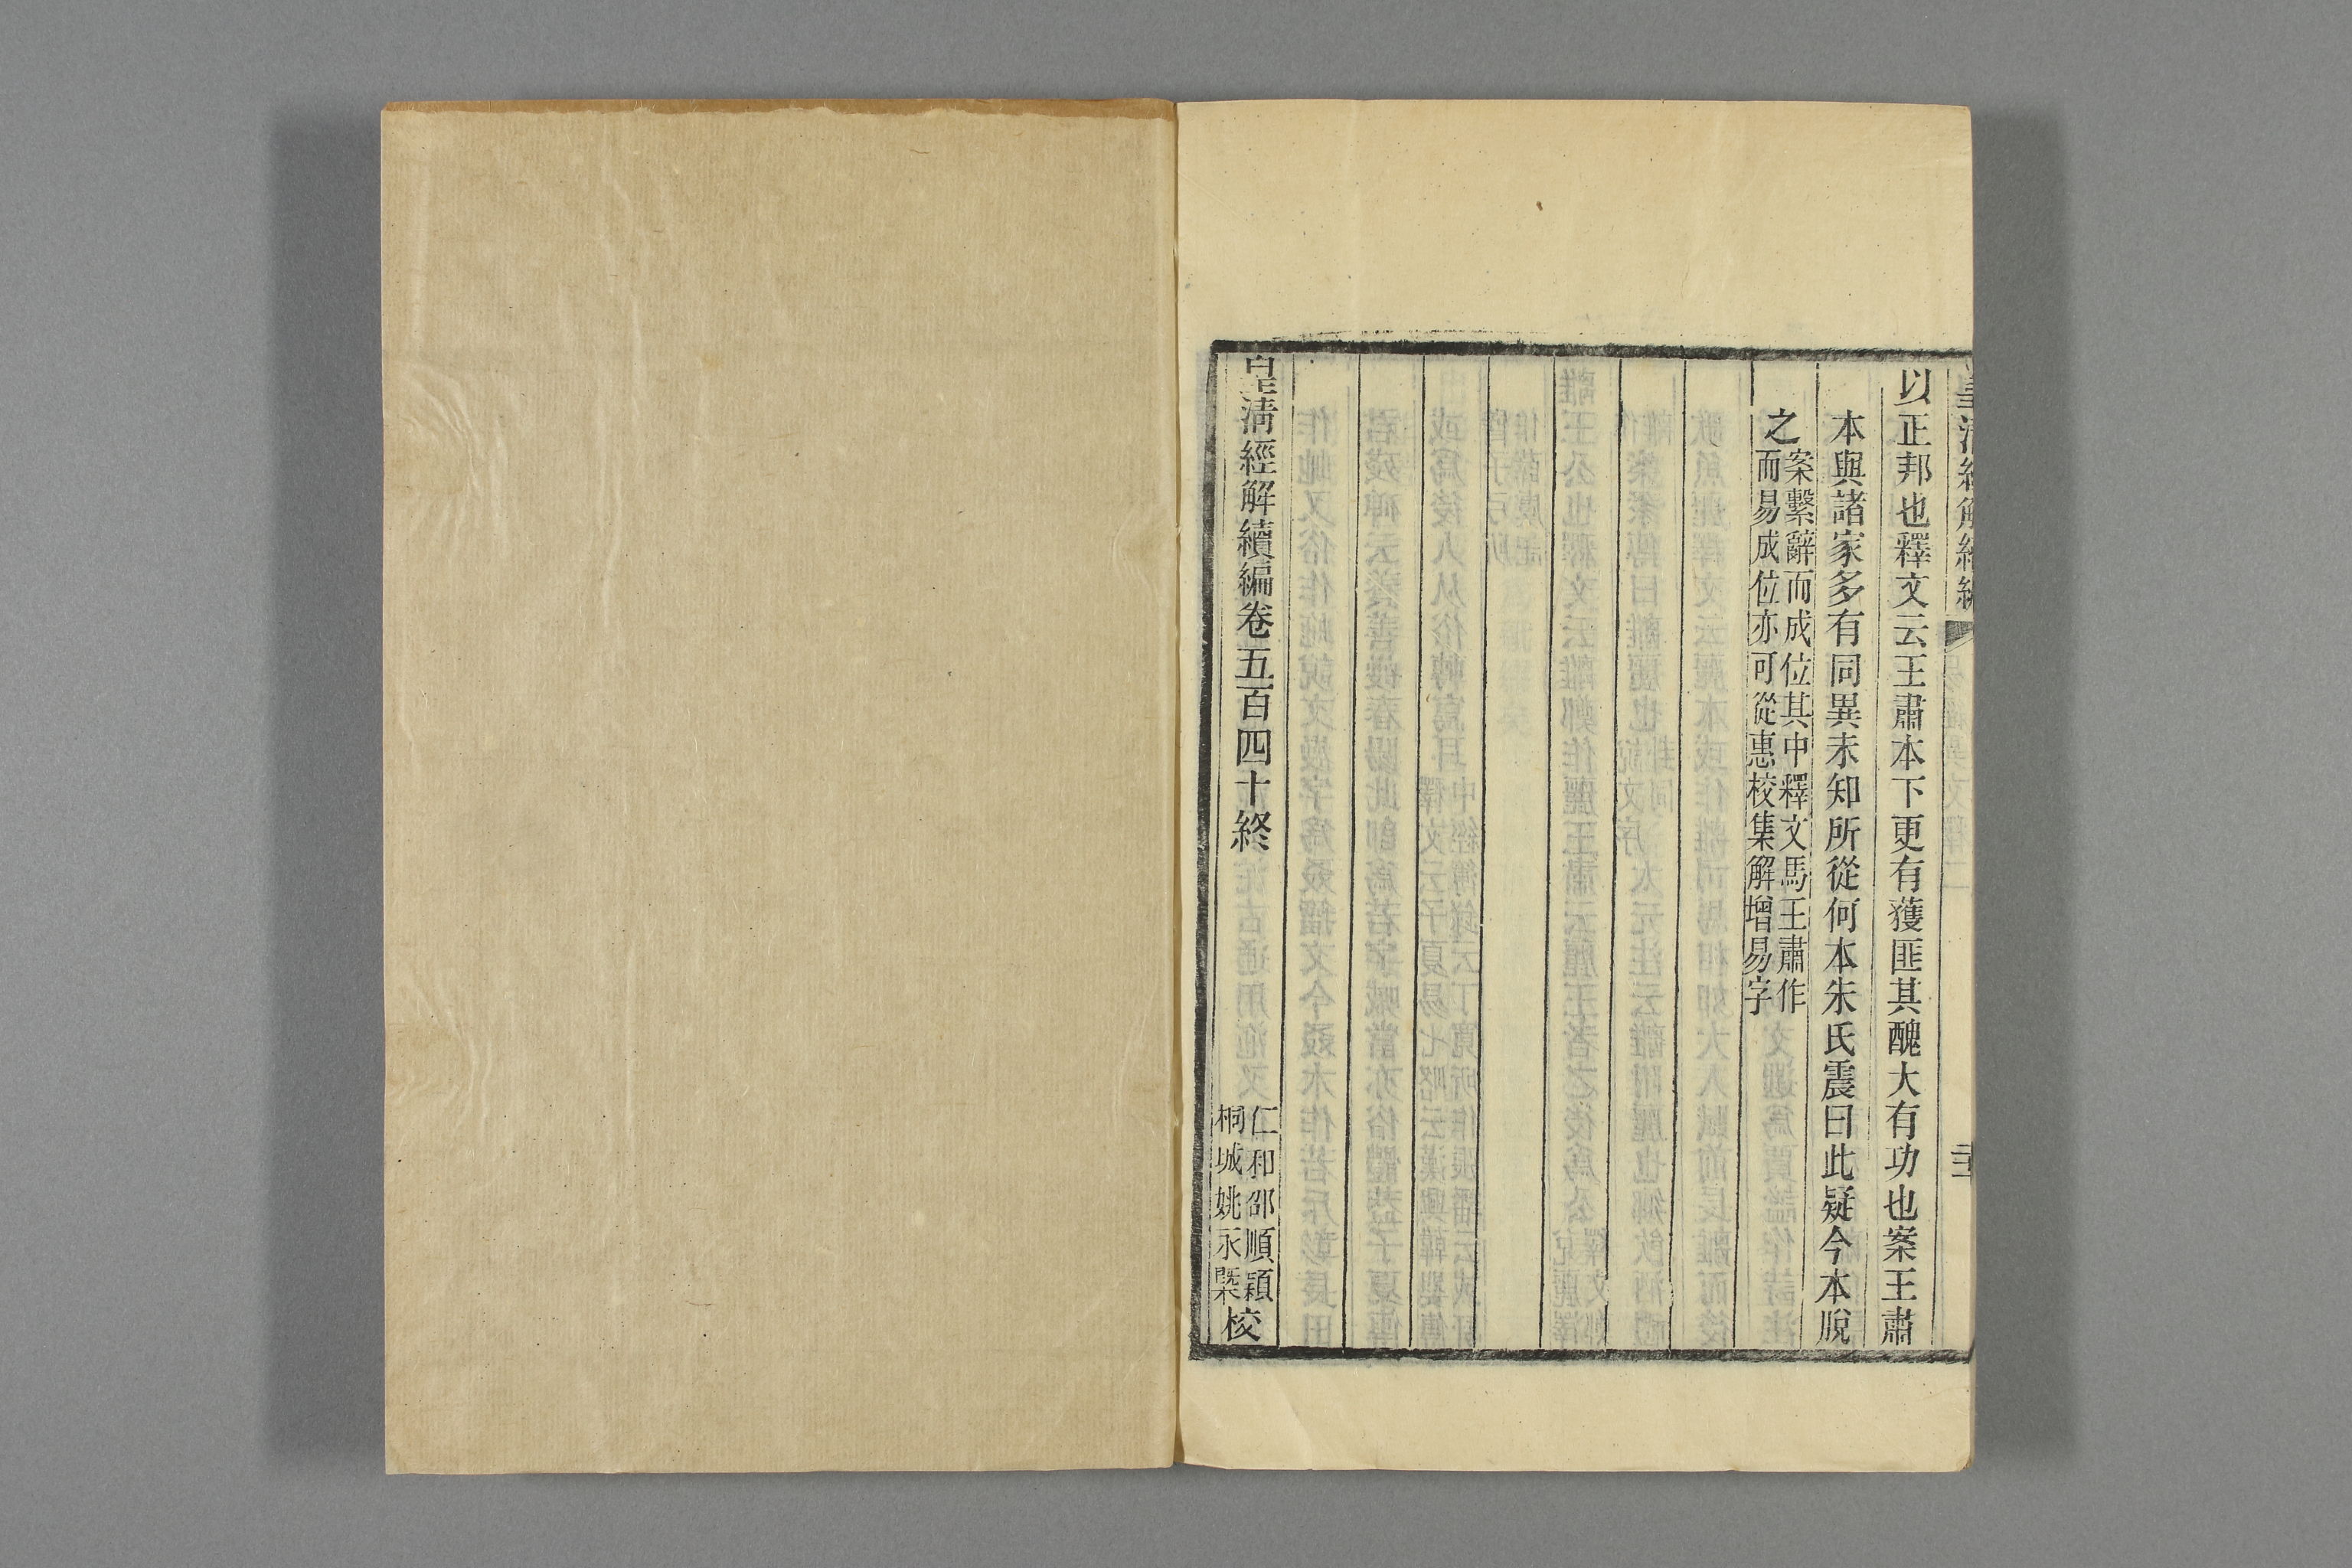 皇清經解續編
以正邦也釋文云王肅本下更有獲匪其醜大有功也案王肅
本與諸家多有同異未知所從何本朱氏震曰此疑今本脫
之案繫辭而成位其中釋文馬王肅作
而易成位亦可從惠校集解增易字
皇清經解續編卷五百四十終
仁和邵順穎
桐城姚永㮣校